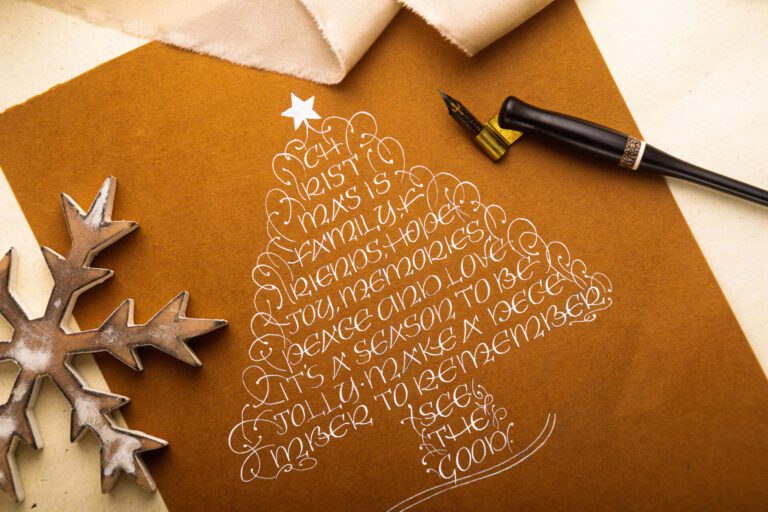 CH
RIST
MAS IS
FAMILY &
FRIENDS, HOPE
JOY, MEMORIES
PEACE AND LOVE
IT'S A SEASON TO BE
JOLLY. MAKE A DECE
MBER TO REMEMBER
SEE
THE
GOOD.